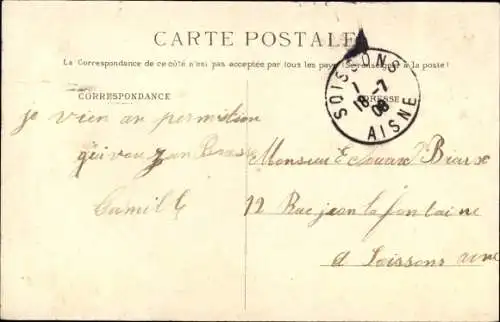 CARTE POSTALE
La Correspondance de ce côté n'est pas acceptée par tous les pays (Se renseigner à la poste)
CORRESPONDANCE
ADRESSE
SOISSONS
18-7
08
AISNE
je vien an permition
Camille
Monsieur Edouard
12 Rue jean la fontaine
a Soissons aisne